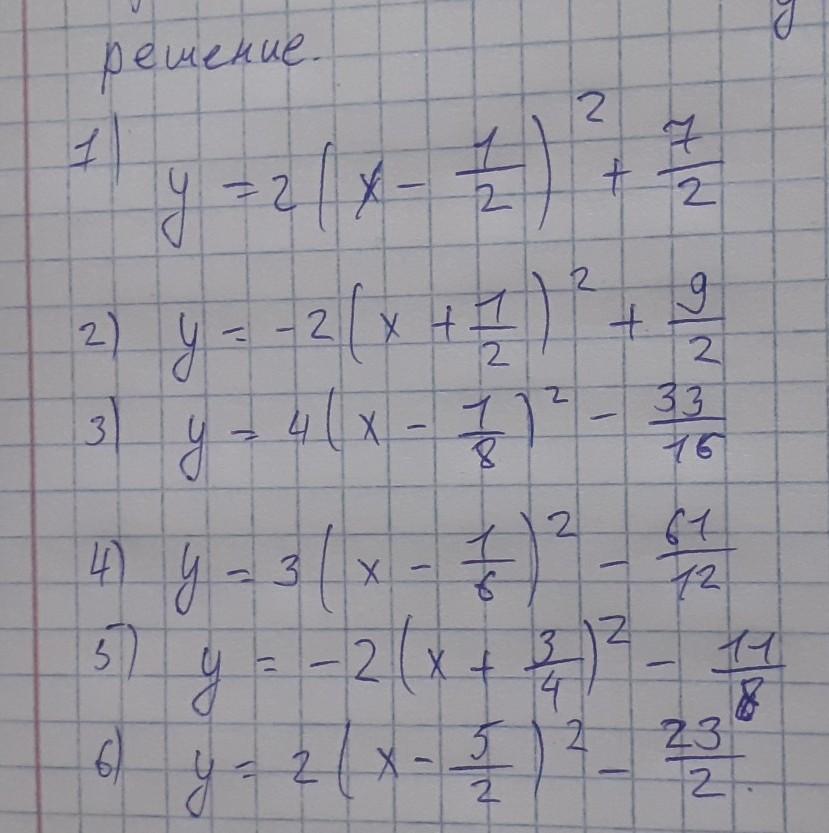 решение.
1) y = 2(x - 1/2)² + 7/2
2) y = -2(x + 1/2)² + 9/2
3) y = 4(x - 1/8)² - 33/16
4) y = 3(x - 1/6)² - 61/12
5) y = -2(x + 3/4)² - 11/8
6) y = 2(x - 5/2)² - 23/2.